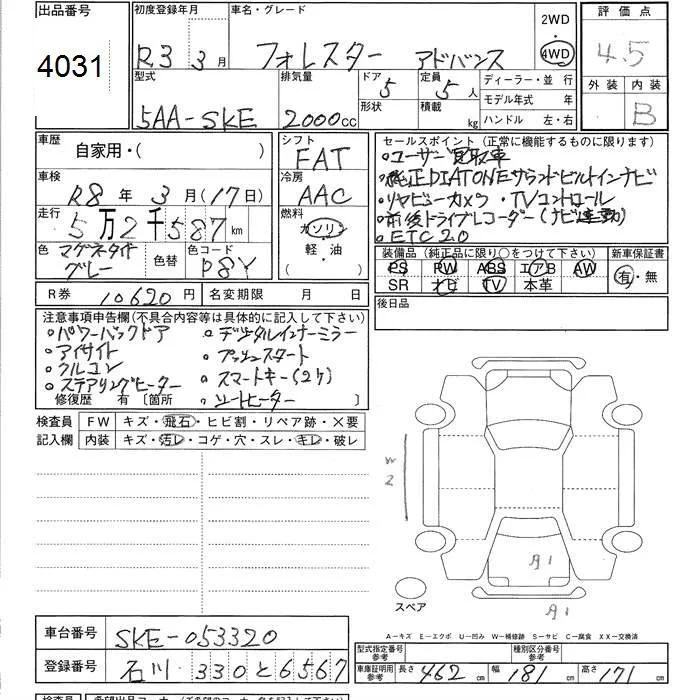 出品番号 4031
初度登録年月 R3 3月
車名・グレード フォレスター アドバンス
2WD・4WD
評価点 4.5
型式 5AA-SKE
排気量 2000cc
ドア 5
形状
定員 5人
積載 kg
ディーラー・並行
モデル年式 年
ハンドル 左・右
外装 内装 B
車歴 自家用・( )
シフト FAT
車検 R8年3月(17日)
冷房 AAC
走行 5万2千587km
燃料 ガソリン 軽・油
色 マグネタイトグレー
色替
色コード P8Y
セールスポイント (正常に機能するものに限ります)
○ユーザー買取車
○純正DIATONEサウンドビルトインナビ
○リヤビューカメラ・TVコントロール
○前後ドライブレコーダー(ナビ連動)
○ETC2.0
装備品 (純正品に限り○をつけて下さい)
新車保証書 有・無
PS PW ABS エアB AW
SR ナビ TV 本革
後日品
R券 10620円
名変期限 月 日
注意事項申告欄(不具合内容等は具体的に記入して下さい)
○パワーバックドア ○デジタルインナーミラー
○アイサイト ○プッシュスタート
○クルコン ○スマートキー(2ケ)
○ステアリングヒーター ○シートヒーター
修復歴 有 〔箇所 〕
検査員記入欄
FW キズ・飛石・ヒビ割・リペア跡・×要
内装 キズ・汚レ・コゲ・穴・スレ・キレ・破レ
W2
A1
A1
スペア
A-キズ E-エクボ U-凹み W-補修跡 S-サビ C-腐食 XX-交換済
車台番号 SKE-053320
登録番号 石川 330 と 6567
型式指定番号 参考
種別区分番号 参考
車庫証明用 参考 長さ 462cm 幅 181cm 高さ 171cm